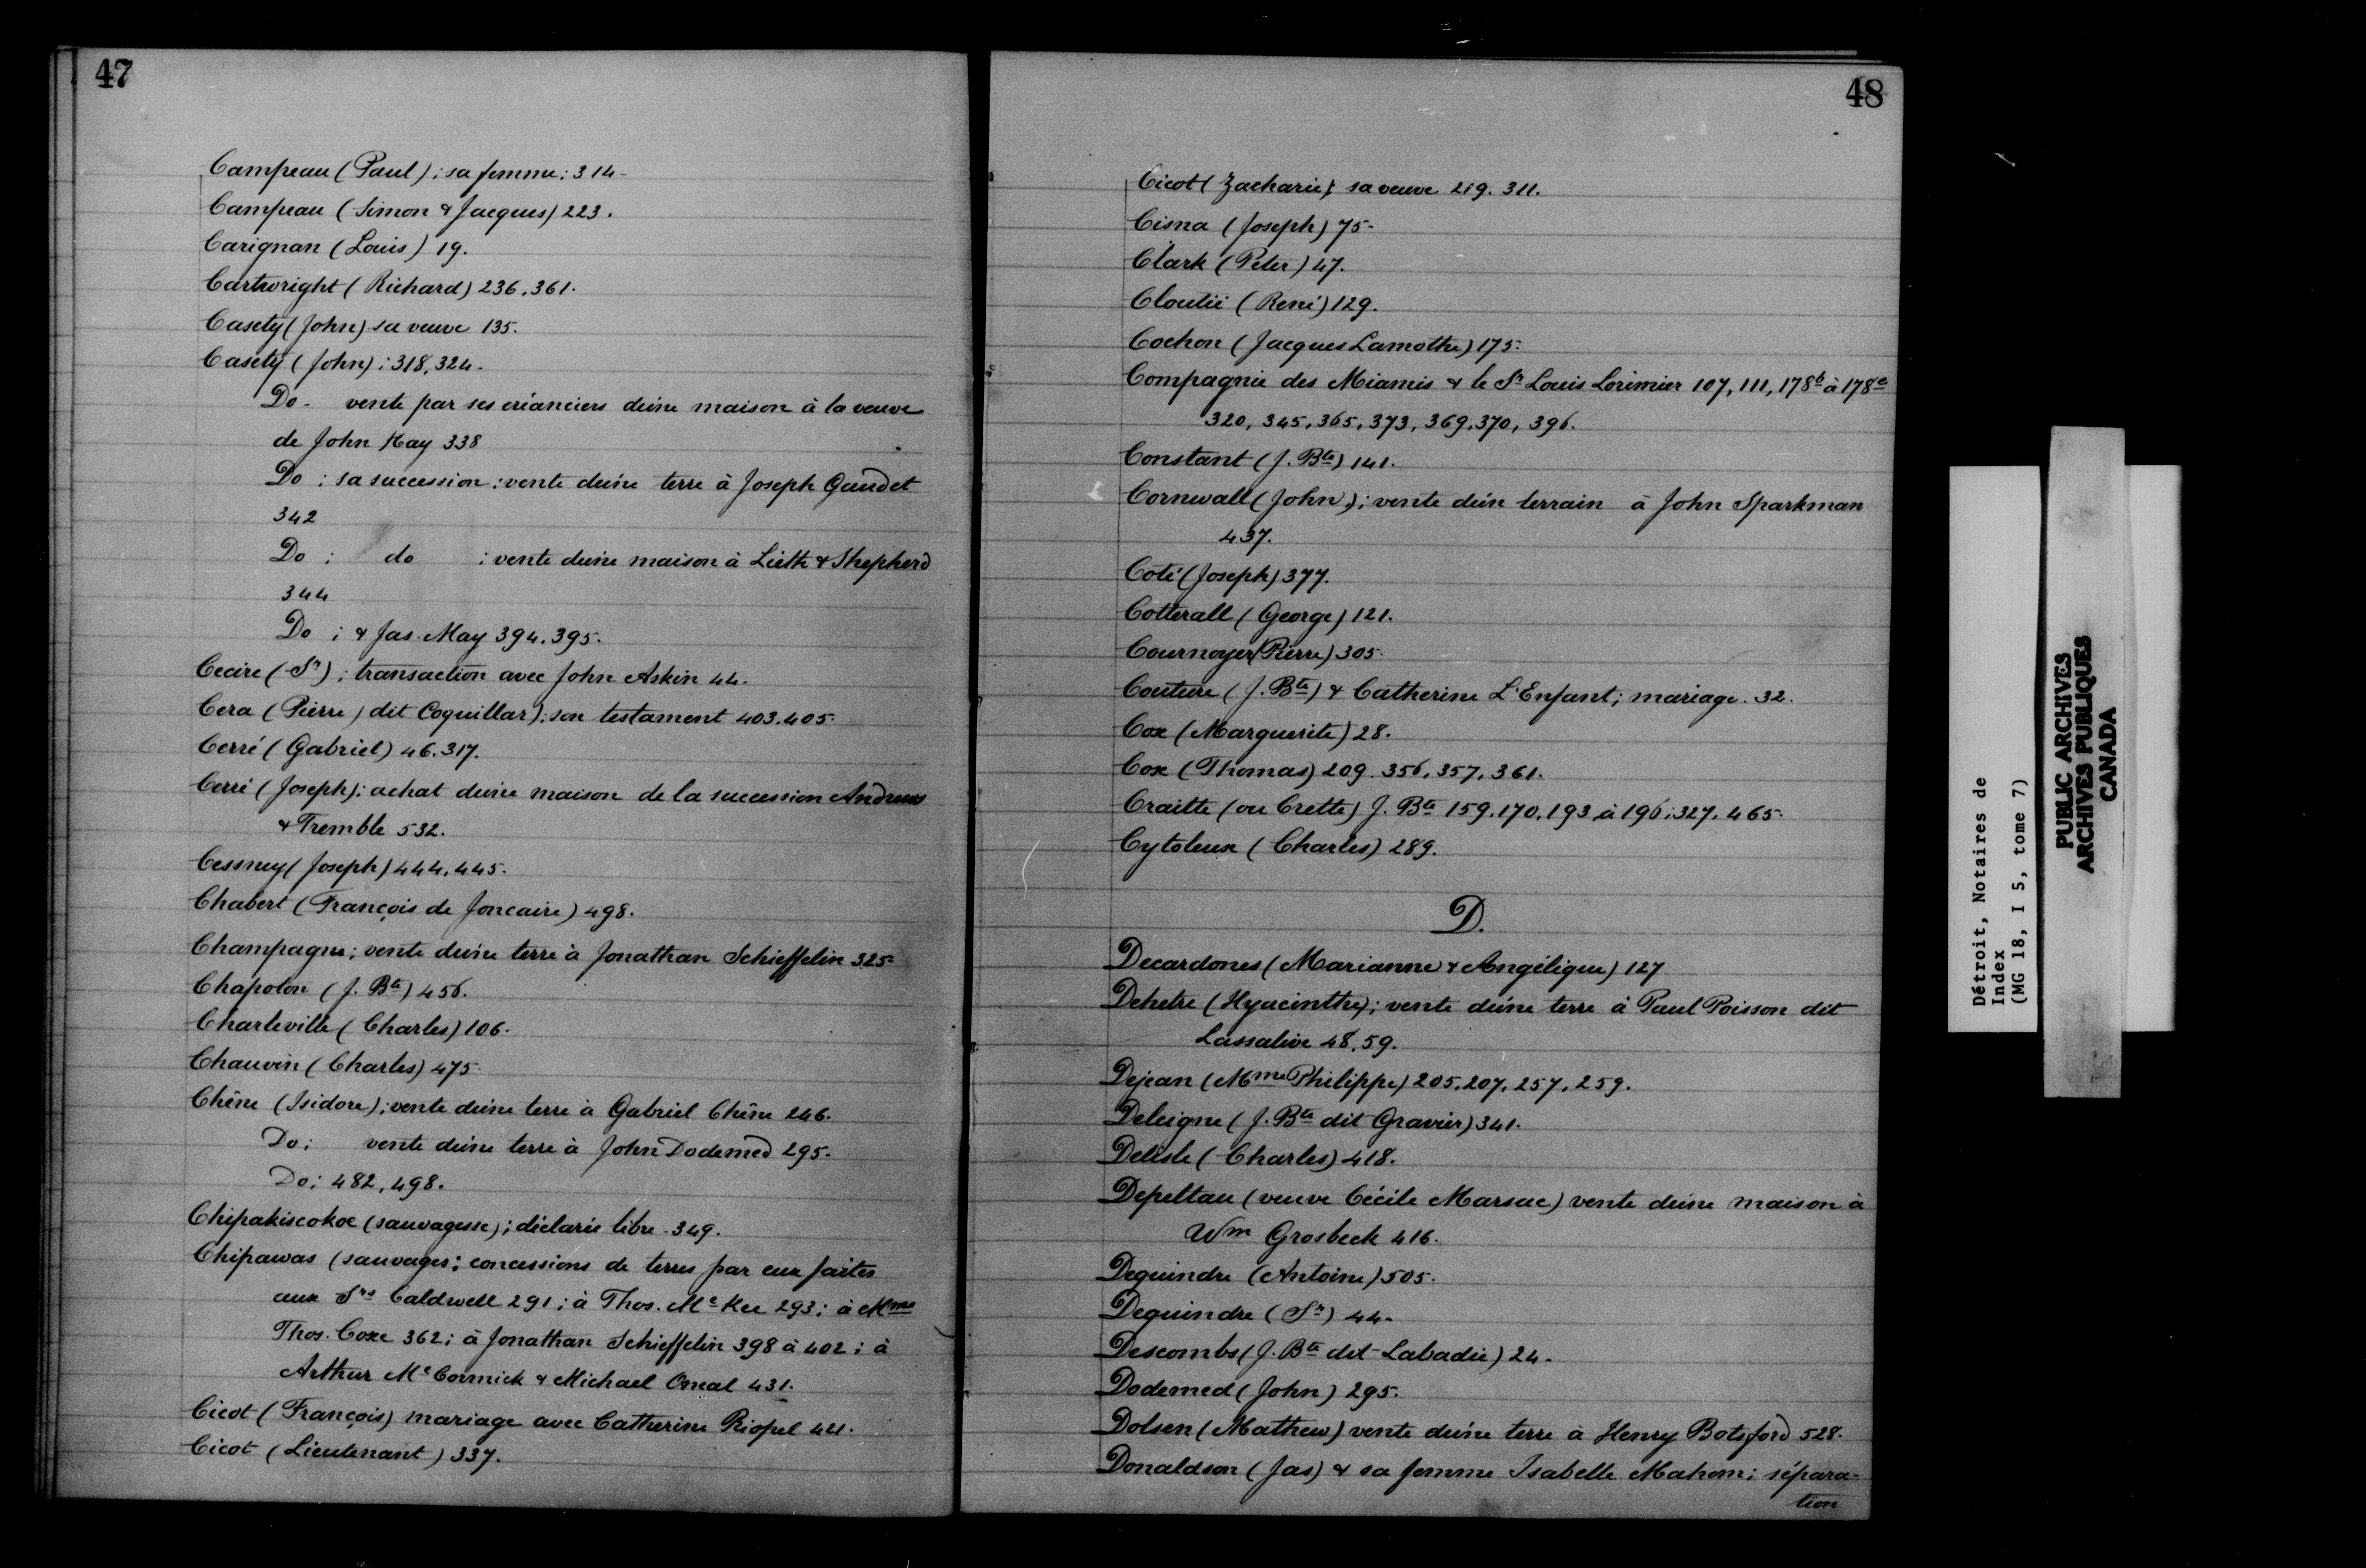 47
Campeau (Paul); sa femme; 314.
Campeau (Simon & Jacques) 223.
Carignan (Louis) 19.
Cartwright (Richard) 236, 361.
Casety (John) sa veuve 135.
Casety (John); 318, 324.
Do. vente par ses créanciers d'une maison à la veuve
de John Hay 338
Do ; sa succession; vente d'une terre à Joseph Gaudet
342
Do ; do ; vente d'une maison à Lieth & Shepherd
344
Do ; & Jas. May 394, 395.
Cecire (Sr); transaction avec John Askin 44.
Cera (Pierre) dit Coquillar); son testament 403. 405.
Cerré (Gabriel) 46. 317.
Cerré (Joseph); achat d'une maison de la succession Andrews
& Tremble 532.
Cessney (Joseph) 444, 445.
Chabert (François de Joncaire) 498.
Champagne; vente d'une terre à Jonathan Schieffelin 325.
Chapoton (J. Bte) 456.
Charleville (Charles) 106.
Chauvin (Charles) 475.
Chêne (Isidore); vente d'une terre à Gabriel Chêne 246.
Do; vente d'une terre à John Dodemed 295.
Do; 482, 498.
Chipakiscokoe (sauvagesse); déclarée libre. 349.
Chipawas (sauvages; concessions de terres par eux faites
aux Srs Caldwell 291; à Thos. Mc Kee 293; à Mme
Thos. Coxe 362; à Jonathan Schieffelin 398 à 402; à
Arthur Mc Cormick & Michael Omal 431.
Cicot (François) mariage avec Catherine Riopel 441.
Cicot (Lieutenant) 337.
48
Cicot (Zacharie); sa veuve 219. 311.
Cisna (Joseph) 75.
Clark (Peter) 47.
Cloutié (René) 129.
Cochon (Jacques Lamothe) 175.
Compagnie des Miamis & le Sr Louis Lorimier 107, 111, 178b à 178e
320, 345, 365, 373, 369, 370, 396.
Constant (J. Bte) 141.
Cornwall (John); vente d'un terrain à John Sparkman
437.
Coté (Joseph) 377.
Cotterall (George) 121.
Cournoyer (Pierre) 305.
Couture (J. Bte) & Catherine L'Enfant; mariage. 32.
Cox (Marguerite) 28.
Cox (Thomas) 209. 356, 357, 361.
Craitte (ou Crette) J. Bte 159, 170, 193 à 196; 327, 465.
Cytoleux (Charles) 289.
D.
Decardones (Marianne & Angélique) 127
Dehetre (Hyacinthe); vente d'une terre à Paul Poisson dit
Lassalive 48, 59.
Dejean (Mme Philippe) 205, 207, 257, 259.
Deleigne (J. Bte dit Gravier) 341.
Delisle (Charles) 418.
Depeltau (veuve Cécile Marsac) vente d'une maison à
Wm Grosbeck 416.
Dequindre (Antoine) 505.
Dequindre (Sr) 44.
Descombs (J. Bte dit Labadie) 24.
Dodemed (John) 295.
Dolsen (Mathew) vente d'une terre à Henry Botsford 528.
Donaldson (Jas) & sa femme Isabelle Mahom; sépara-
tion
Détroit, Notaires de
Index
(MG 18, I 5, tome 7)
PUBLIC ARCHIVES
ARCHIVES PUBLIQUES
CANADA